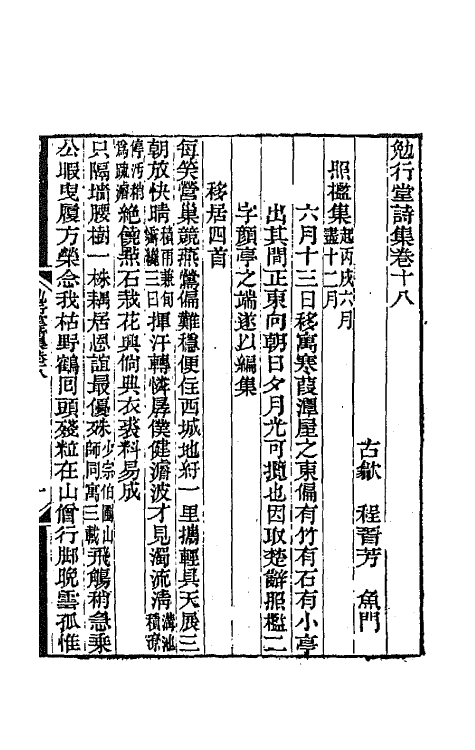 勉行堂詩集卷十八
古歙　程晉芳　魚門
照檻集起丙戌六月盡十二月
六月十三日移寓寒葭潭屋之東偏有竹有石有小亭
出其間正東向朝日夕月尤可攬也因取楚辭照檻二
字顏亭之端遂以編集
移居四首
每笑營巢競燕鶯偏難穩便住西城地紆一里攜輕具天展三
朝放快晴積雨兼旬霽纔三日揮汗轉憐孱僕健澹波才見濁流清溝池積潦
停污稍爲疏瀹絶憐點石栽花興倘典衣裘料易成
只隔墻腰樹一株耦居恩誼最優殊少宗伯園山師同寓三載飛觴稍急乗
公暇曳履方榮念我枯野鶴囘頭殘粒在山僧行脚晚雲孤惟